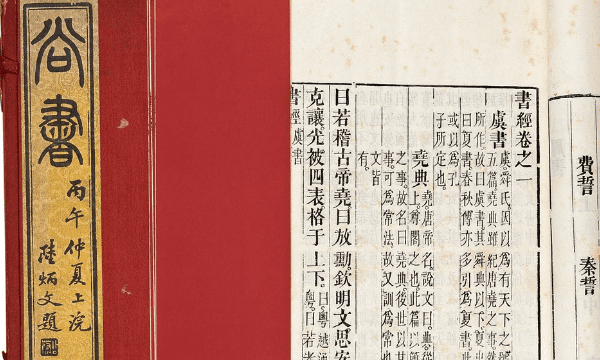 尚書
丙午仲夏上浣
陸炳文題
費誓
秦誓
書經卷之一
虞書
虞舜氏因以為有天下之號
五篇堯典雖紀唐堯之事然
所作故曰虞書其舜典以下夏
曰夏書春秋傳亦多引為夏書此
或以為孔
子所定也
堯典
堯唐帝名說文曰典從
上尊閣之也此篇以簡
之事故名曰堯典後世以其
事可為常法故又訓為常也
文皆
有
曰若稽古帝堯曰放勳欽明文思安
克讓光被四表格于上下
曰粵越通
粵曰若者
書經 虞書